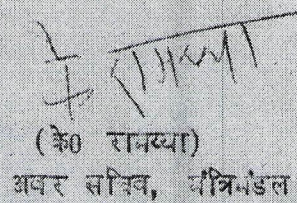 के. रामय्या
(के0 रामय्या)
अवर सचिव, मंत्रिमंडल